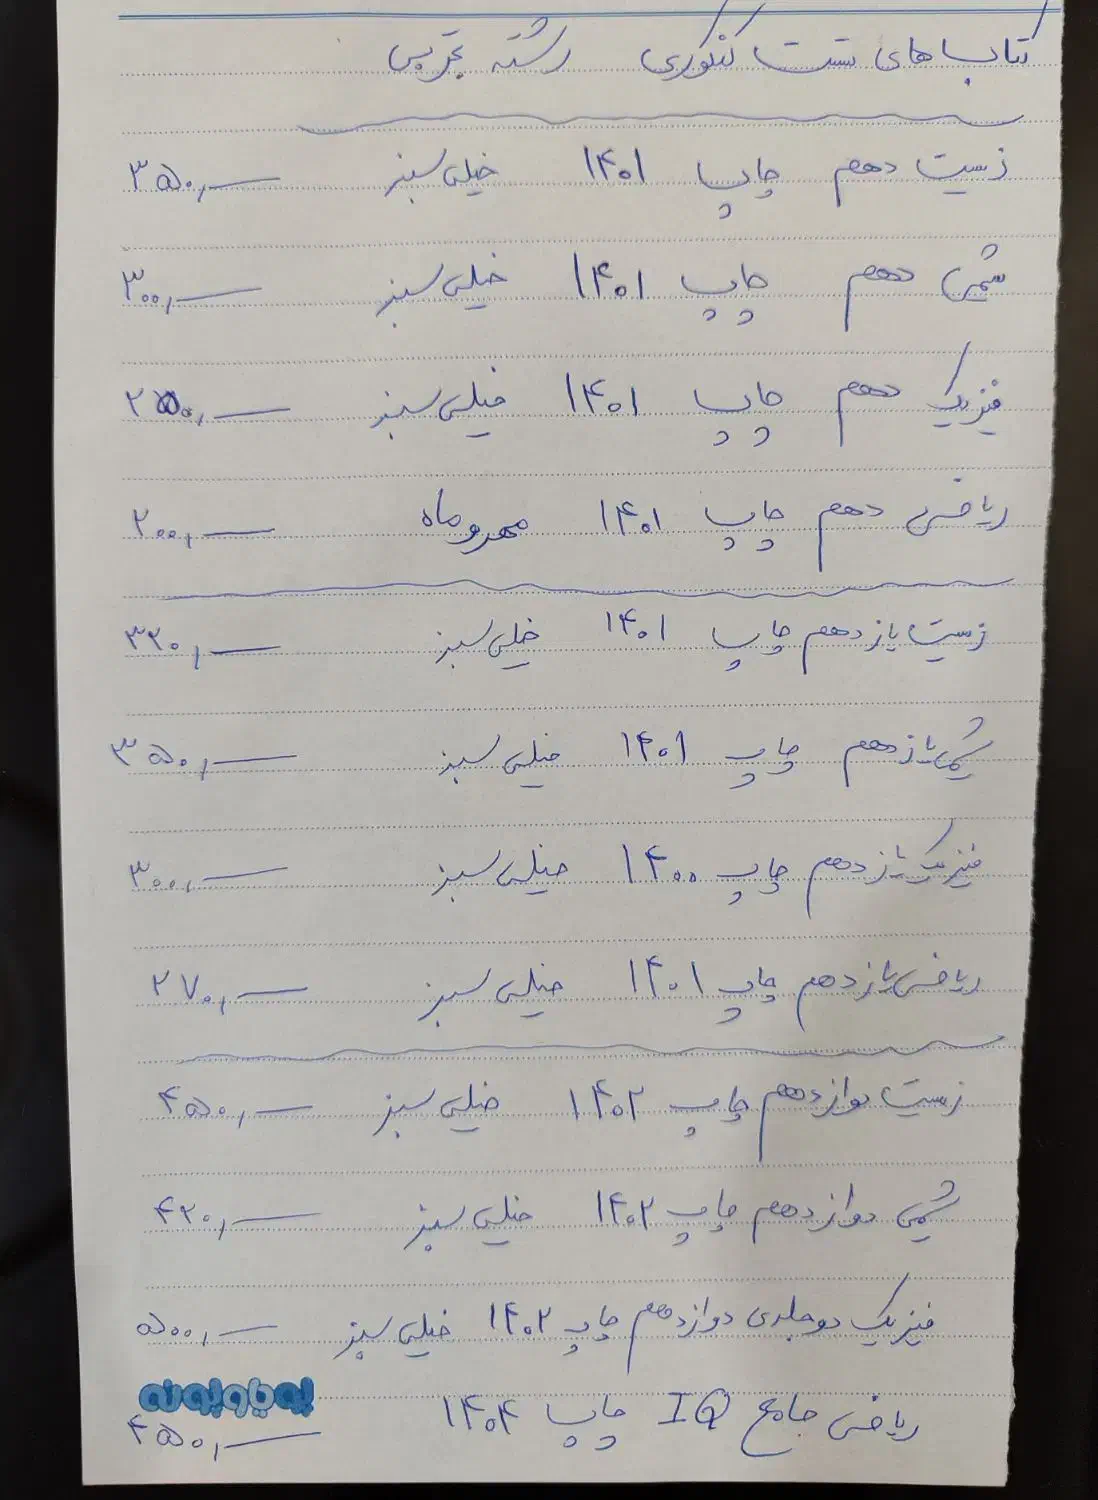 کتاب های تست کنکوری رشته تجربی
زیست دهم چاپ ۱۴۰۱ خیلی سبز ۳۵۰,—
شیمی دهم چاپ ۱۴۰۱ خیلی سبز ۳۰۰,—
فیزیک دهم چاپ ۱۴۰۱ خیلی سبز
ریاضی دهم چاپ ۱۴۰۱ مهروماه ۲۰۰,—
زیست یازدهم چاپ ۱۴۰۱ خیلی سبز ۳۲۰,—
شیمی یازدهم چاپ ۱۴۰۱ خیلی سبز ۳۵۰,—
فیزیک یازدهم چاپ ۱۴۰۰ خیلی سبز ۳۰۰,—
ریاضی یازدهم چاپ ۱۴۰۱ خیلی سبز ۲۷۰,—
زیست دوازدهم چاپ ۱۴۰۲ خیلی سبز ۴۵۰,—
شیمی دوازدهم چاپ ۱۴۰۲ خیلی سبز ۴۲۰,—
فیزیک دوجلدی دوازدهم چاپ ۱۴۰۲ خیلی سبز ۵۰۰,—
ریاضی جامع IQ چاپ ۱۴۰۴ ۴۵۰,—